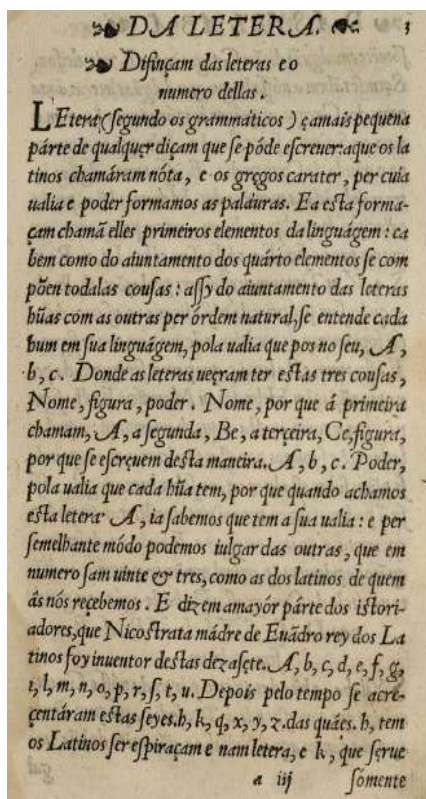 DA LETERA. 3
Difinçam das leteras e o
numero dellas.
LEtera (segundo os grammáticos) ę a mais pequena
párte de qualquęr diçam que se póde escreuer: a que os la
tinos chamáram nóta, e os gręgos carater, per cuia
ualia e poder formamos as paláuras. E a esta forma-
çam chamã elles primeiros elementos da linguágem: ca
bem como do aiuntamento dos quátro elementos se com
põen todalas cousas: assy do aiuntamento das leteras
hũas com as outras per órdem natural, se entende cada
hum em sua linguágem, pola ualia que pos no seu, A,
b, c. Donde as leteras uęęram ter estas tres cousas,
Nome, figura, poder. Nome, por que á primeira
chamam, A, a segunda, Be, a terçeira, Ce, figura,
por que se escręuem desta maneira. A, b, c. Poder,
pola ualia que cada hũa tem, por que quando achamos
esta letera A, ia sabemos que tem a sua ualia: e per
semelhante módo podemos iulgar das outras, que em
numero sam uinte & tres, como as dos latinos de quem
ás nós reçebemos. E dizem a mayór párte dos istori-
adores, que Nicostrata mádre de Euãdro rey dos La
tinos foy inuentor destas dezasęte. A, b, c, d, e, f, g,
i, l, m, n, o, p, r, s, t, u. Depois pelo tempo se acre-
çentáram estas seyes. h, k, q, x, y, z. das quáes. h, tem
os Latinos ser espiraçam e nam letera, e k, que sęrue
a iij sómente